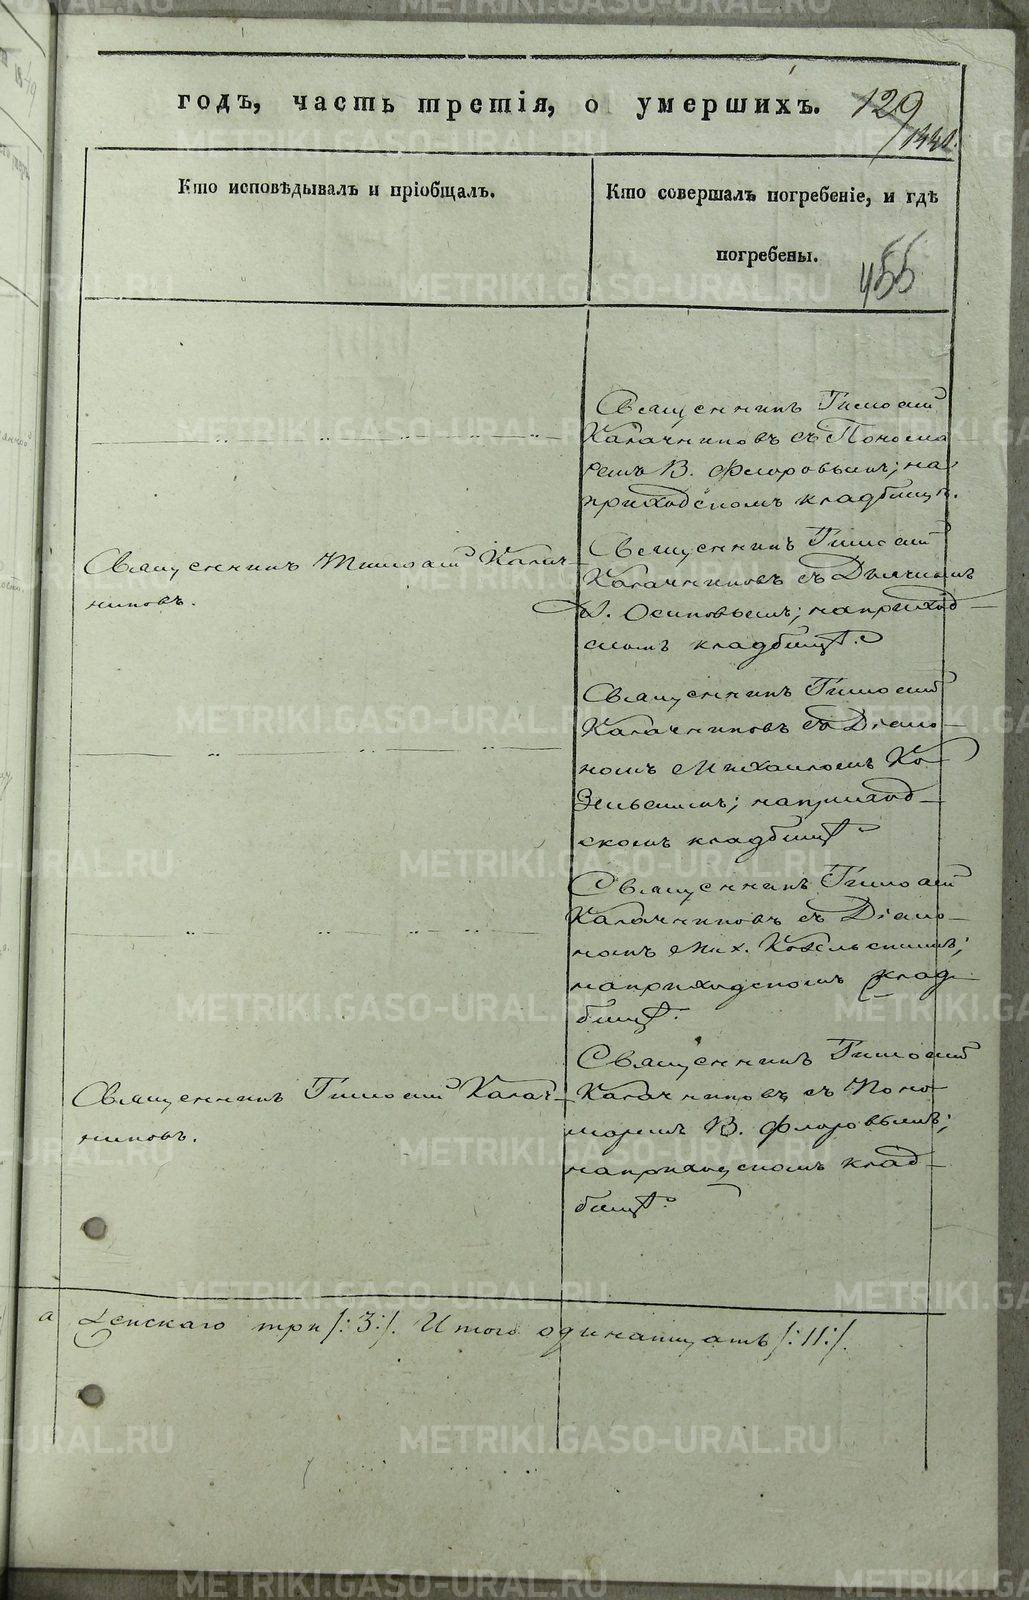 годъ, часть третія, о умершихъ. 129
Кто исповѣдывалъ и пріобщалъ.
Кто совершалъ погребеніе, и гдѣ
погребены.
455
Священникъ Тимоѳей
Калачниковъ съ Понома
ремъ В. Флоровымъ; на
приходскомъ кладбищѣ.
Священникъ Тимоѳей Калач-
никовъ.
Священникъ Тимоѳей
Калачниковъ съ Дьячкомъ
Осиповымъ; на приход-
скомъ кладбищѣ.
Священникъ Тимоѳей
Калачниковъ съ Діако-
номъ Михаиломъ Ко
зельскимъ; на приход-
скомъ кладбищѣ.
Священникъ Тимоѳей
Калачниковъ съ Діако-
номъ Мих. Козельскимъ;
на приходскомъ клад-
бищѣ.
Священникъ Тимоѳей Калач-
никовъ.
Священникъ Тимоѳей
Калачниковъ съ Поно
маремъ В. Флоровымъ;
на приходскомъ клад-
бищѣ.
а женскаго три /:3:/. Итого одинатцать /:11:/.
METRIKI.GASO-URAL.RU